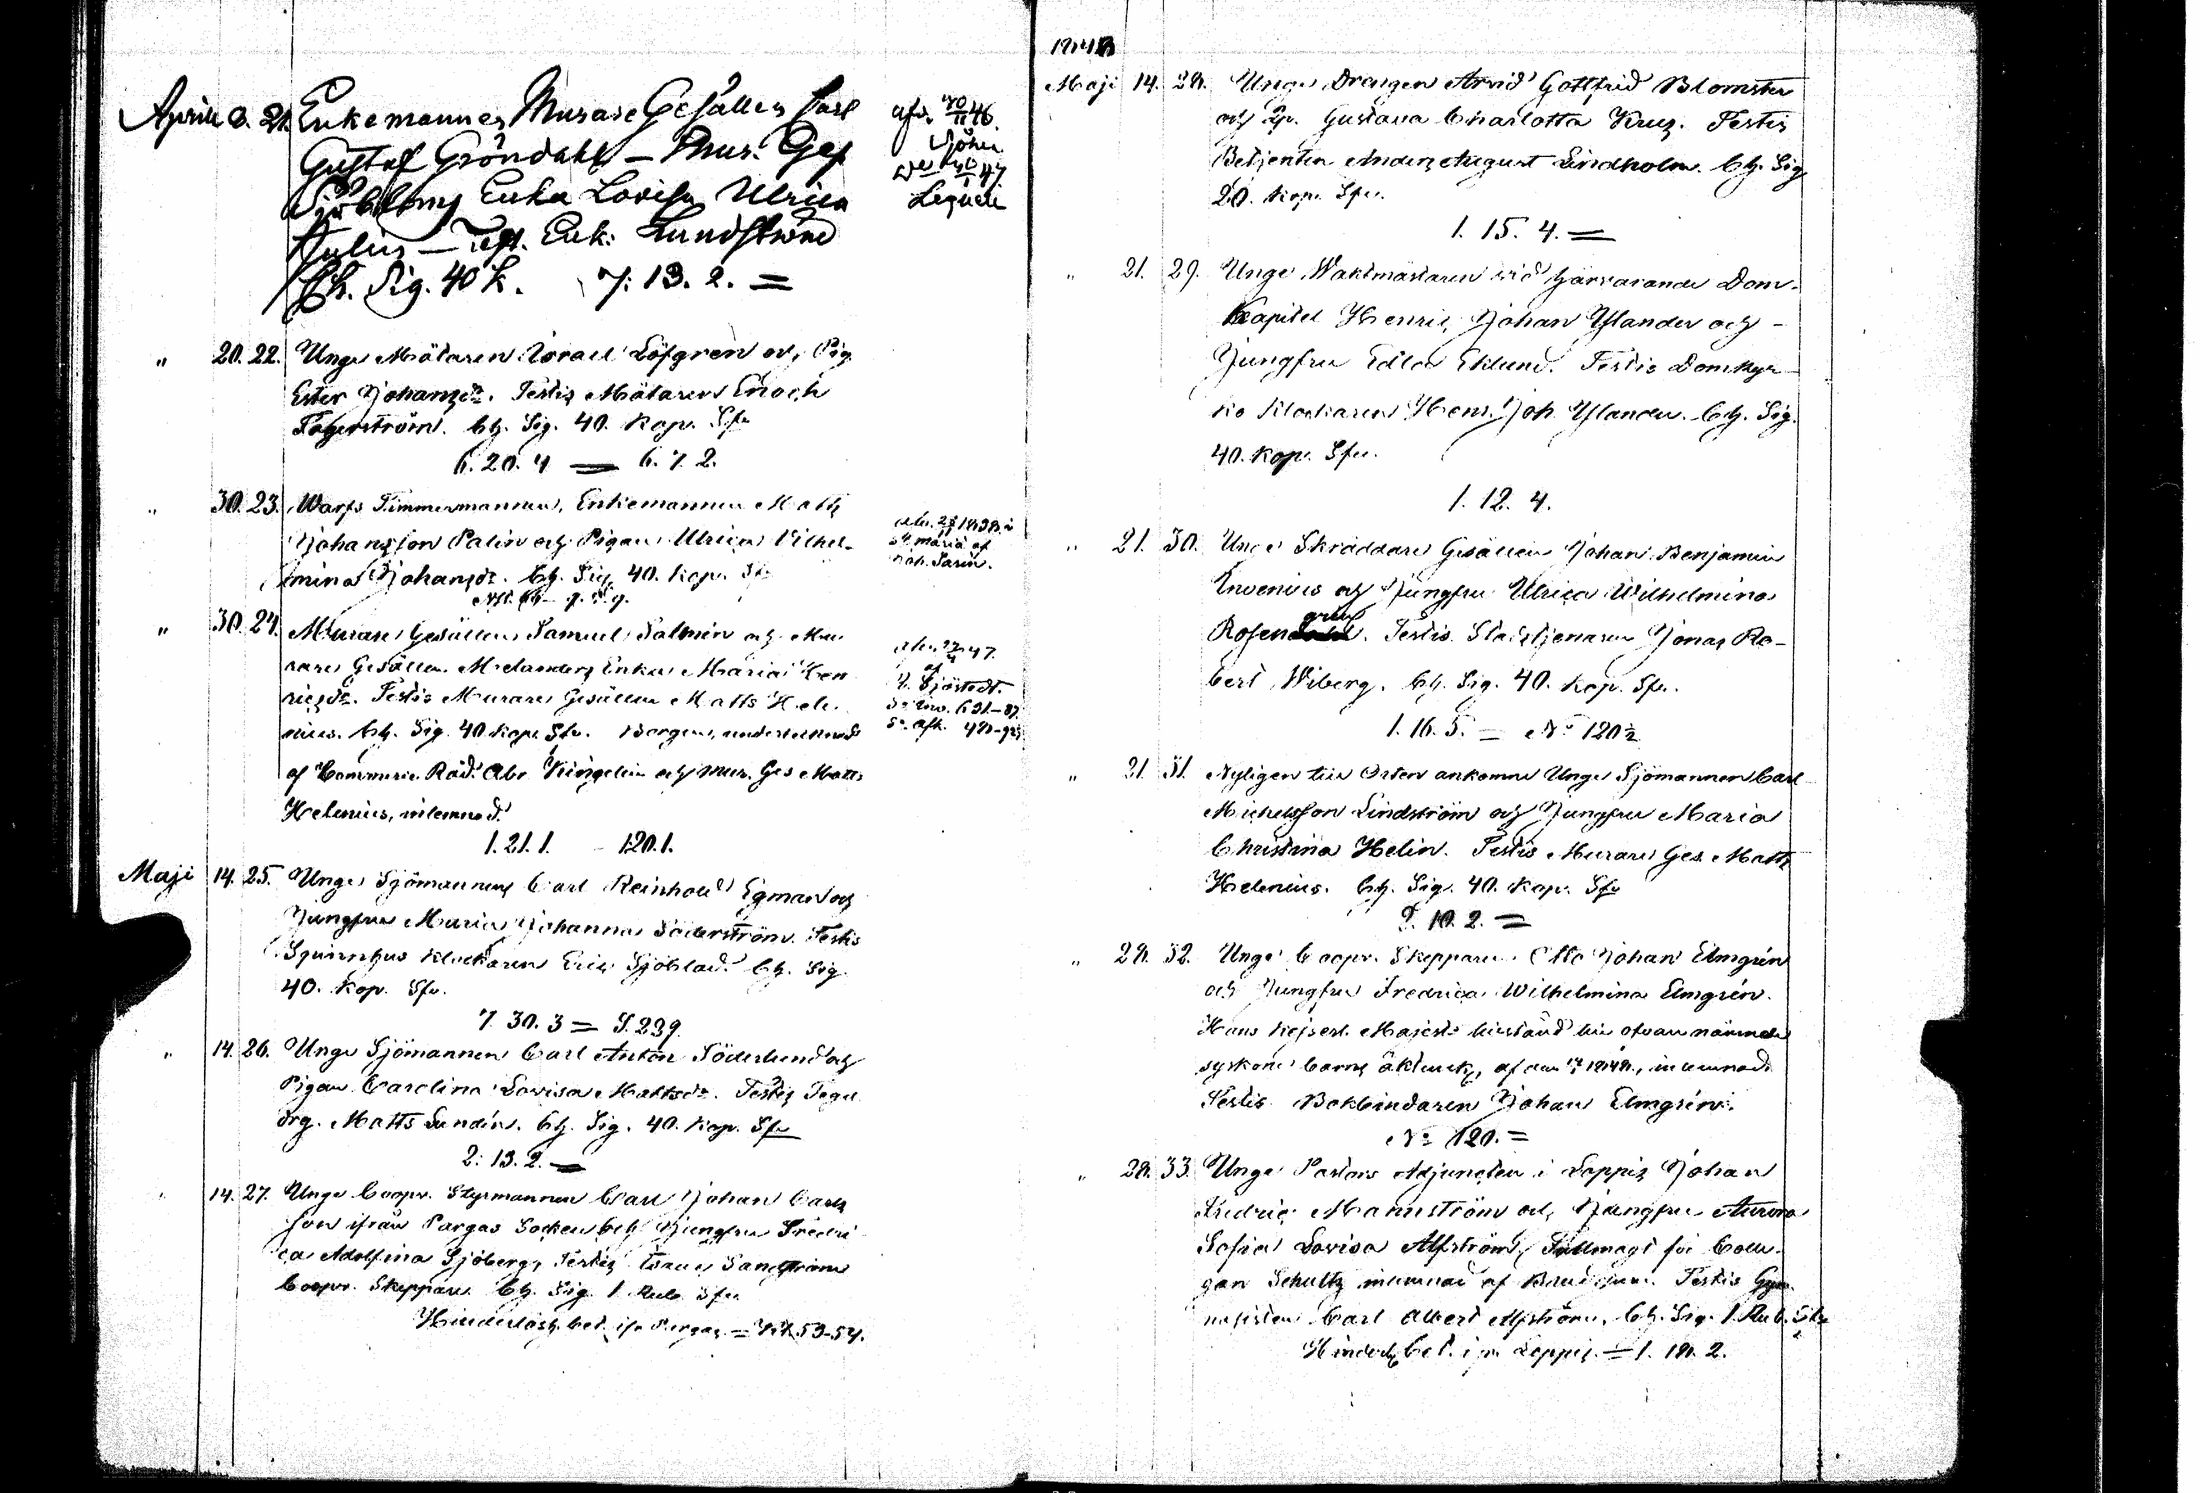 Aprill 3. 21. Enkemannen Murare Gesällen Carl
Gustaf Gröndahl – Mur. Ges.
Sjöbloms Enka Lovisa Ulrica
Julin – Test. Enk: Lundström
Ch. Sig. 40 k. 7: 13. 2. =
afv. 46.
47
" 20. 22. Unge Mätaren Israel Löfgren och Pig.
Ester Johansdr. Testis Mätaren Enoch
Fagerström. Ch. Sig. 40. Kop. Sfr.
6. 20. 4 = 6. 7. 2.
" 30. 23. Warfs Timmermannen, Enkemannen Matts
Johansson Palin och Pigan Ulrica Vilhel-
mina Johansdr. Ch. Sig. 40. Kop. Sfr
St. Maria af
" 30. 24. Murare Gesällen Samuel Salmin och Mu
rare Gesällen Melanders Enka Maria Hen
ricsdr. Testis Murare Gesällen Matts Hele-
nius. Ch. Sig. 40 Kop. Sfr. Borgen, undertecknad
af Commercie Råd. Abr. Kingelin och Mur. Ges. Matts
Helenius, inlemnad.
1. 21. 1. 120. 1.
47.
af
Sjöstedt.
Maji 14. 25. Unge Sjömannen Carl Reinhold Egman och
Jungfru Maria Johanna Söderström. Testis
Spinnhus Klockaren Eric Sjöblad. Ch. Sig.
40. Kop. Sfr.
7. 30. 3 = S. 239.
" 14. 26. Unge Sjömannen Carl Anton Söderlund och
Pigan Carolina Lovisa Mattsdr. Testis
Matts Sundin. Ch. Sig. 40. Kop. Sfr
2: 13. 2. =
" 14. 27. Unge Coopv. Styrmannen Carl Johan Carls
son ifrån Pargas Socken och Jungfru Fredri
ca Adolfina Sjöberg, Testis Sandström
Coopv. Skeppare. Ch. Sig. 1 Rub. Sfr.
Hinderlösh. bet. ifr. Pargas = 53-54.
1848
Maji 14. 28. Unge Drengen Arvid Gottfrid Blomster
och Gustava Charlotta Testis
Betjenten Anders August Lindholm. Ch. Sig.
20. Kop. Sfr.
1. 15. 4. =
" 21. 29. Unge Waktmästaren vid härvarande Dom-
Kapitel Henric Johan Ylander och -
Jungfru Edla Eklund. Testis Domkyr-
ko Klockaren Henr. Joh. Ylander. Ch. Sig.
40. Kop. Sfr.
1. 12. 4.
" 21. 30. Unge Skräddare Gesällen Johan Benjamin
Invenius och Jungfru Ulrica Wilhelmina
gren
Rosen. Testis Stadstjenaren Jonas Ro-
bert Wiberg. Ch. Sig. 40. Kop. Sfr.
1. 16. 5. = No 120½
" 21. 31. Nyligen till Orten ankomne Unge Sjömannen Carl
Michelsson Lindström och Jungfru Maria
Christina Helin. Testis Murare Ges. Matts
Helenius. Ch. Sig. 40. Kop. Sfr
10. 2. =
" 28. 32. Unge Coopv. Skepparen Otto Johan Elmgrén
och Jungfru Fredrica Wilhelmina Elmgrén.
Hans Kejserl. Majest:s tillstånd till ofvannämnde
syskone barns äktensk., af den 1848, inlemnad.
Testis Bokbindaren Johan Elmgrén.
No 120. =
" 28. 33. Unge Pastors Adjuncten i Loppis Johan
Fredric Mannström och Jungfru Aurora
Sofia Lovisa Alfström, Fullmagt för Colle-
gan Schultz inlemnad af Brudgum. Testis Gym
nasisten Carl Albert Alfström. Ch. Sig. 1. Rub. Sfr
Hinderlh. bet. ifr. Loppis = 1. 18. 2.